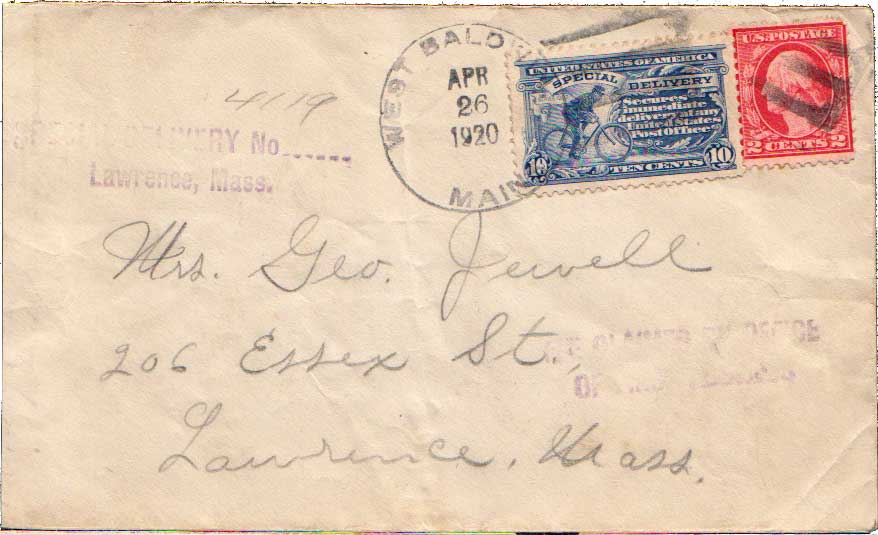 WEST BALDW
APR
26
1920
MAIN
UNITED STATES OF AMERICA
SPECIAL DELIVERY
Secures
immediate
delivery at any
United States
Post Office
10 TEN CENTS 10
U.S. POSTAGE
2 CENTS 2
4119
DELIVERY No
Lawrence, Mass.
Mrs. Geo. Jewell
206 Essex St.,
Lawrence, Mass.
CLAIMED OFFICE
OF